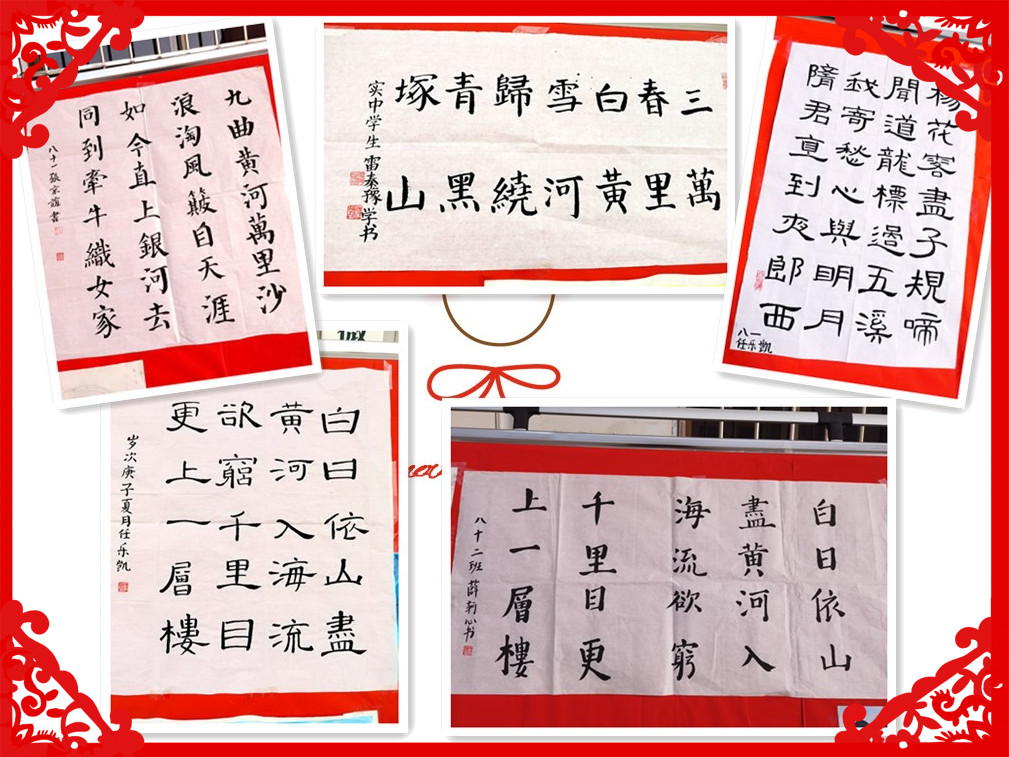 九曲黄河萬里沙
浪淘風簸自天涯
如今直上銀河去
同到牽牛織女家
八十一張京誼書
三春白雪歸青塚
萬里黄河繞黑山
实中学生 雷泰豫学书
楊花客盡子規啼
聞道龍標過五溪
我寄愁心與明月
隨君直到夜郎西
八一
任乐凯
白日依山盡
黄河入海流
欲窮千里目
更上一層樓
岁次庚子夏月任乐凯
白日依山
盡黄河入
海流欲窮
千里目更
上一層樓
八十二班 薛